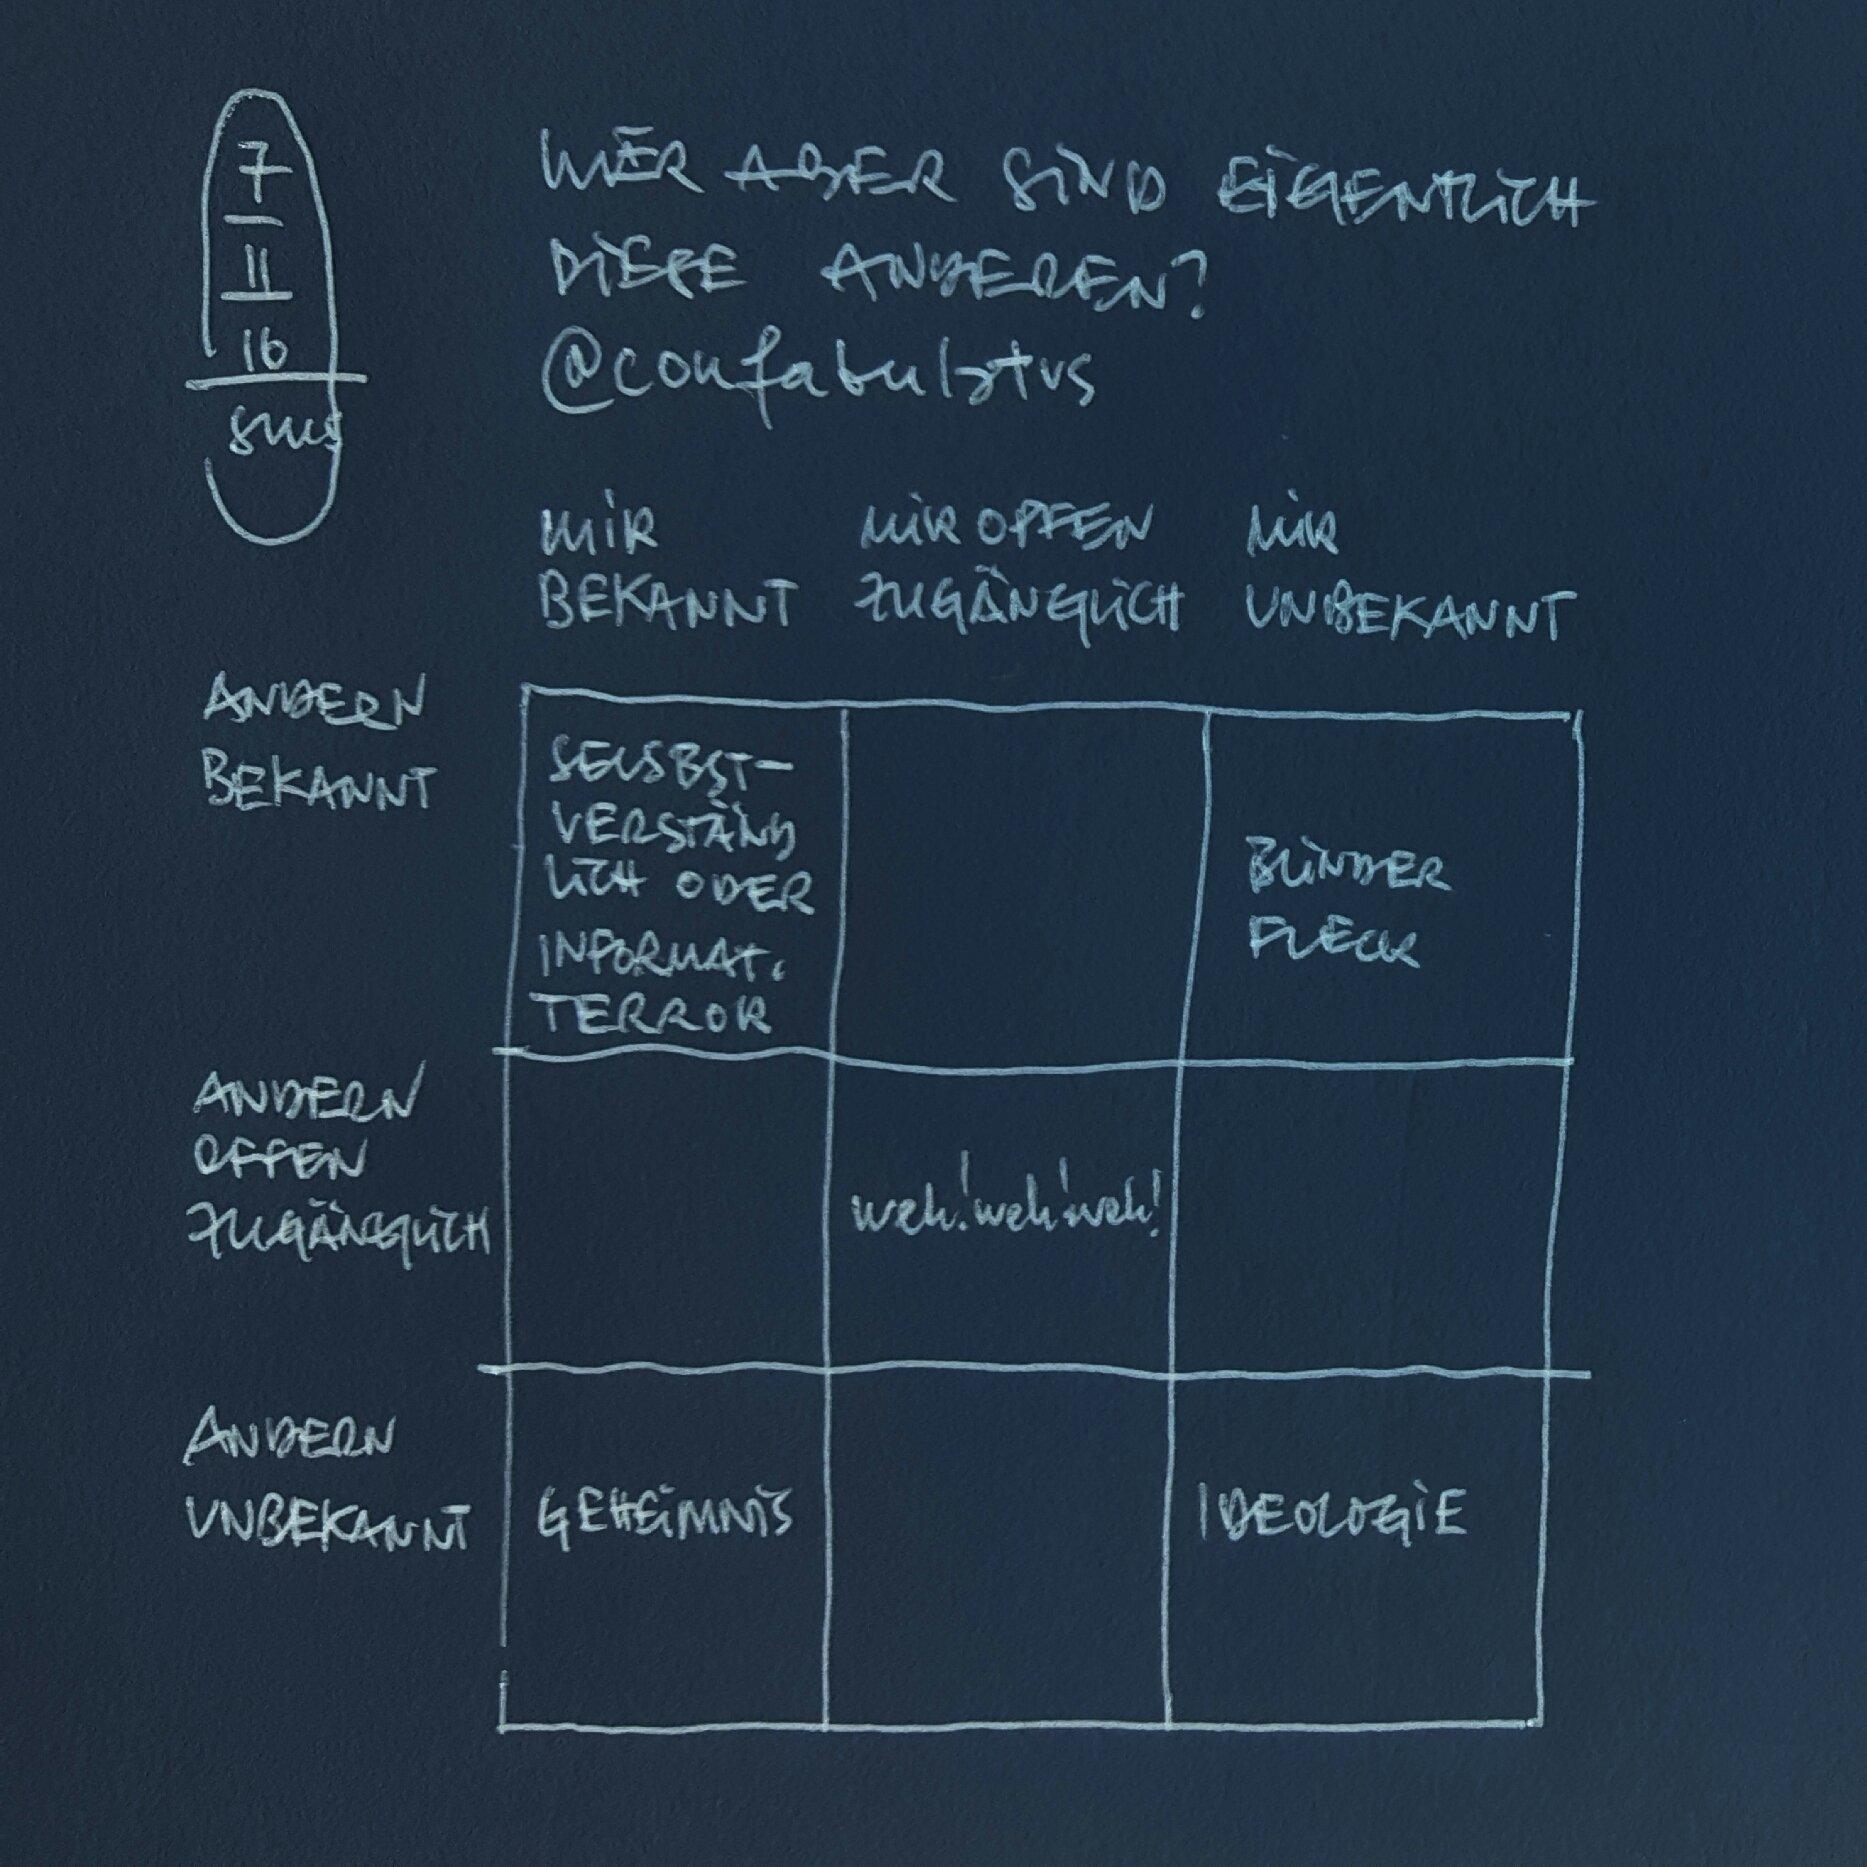 7
11
16
sms
WER ABER SIND EIGENTLICH
DIESE ANDEREN?
@confabulatvs
MIR
BEKANNT
MIR OFFEN
ZUGÄNGLICH
MIR
UNBEKANNT
ANDERN
BEKANNT
SELSBST-
VERSTÄND
LICH ODER
INFORMAT.
TERROR
BLINDER
FLECK
ANDERN
OFFEN
ZUGÄNGLICH
weh! weh! weh!
ANDERN
UNBEKANNT
GEHEIMNIS
IDEOLOGIE